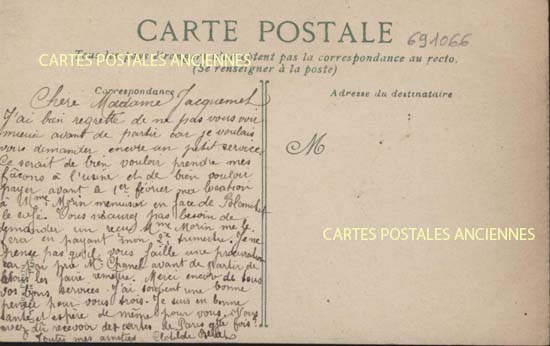 CARTE POSTALE
691066
CARTES POSTALES ANCIENNES
pas la correspondance au recto.
(Se renseigner à la poste)
Correspondance
Adresse du destinataire
M
Chère Madame Jacquemet
J'ai bien regretté de ne pas vous voir
mieux avant de partir car je voulais
vous demander encore un petit service
Ce serait de bien vouloir prendre mes
façons à l'usine et de bien vouloir
payer avant le 1er février ma location
à Mme Morin menuisier en face de
le café. Vous n'aurez pas besoin de
demander un reçu Mme Morin me le
fera en payant mon 2e trimestre. Je ne
pense pas qu'il vous faille une procuration
car j'ai prié Mr Chanel avant de partir de
les faire remettre. Merci encore de tous
vos bons services. J'ai souvent une bonne
pensée pour vous trois. Je suis en bonne
santé et espère de même pour vous. Vous
avez dû recevoir des cartes de Paris cette fois.
Toutes mes amitiés Clotilde
CARTES POSTALES ANCIENNES